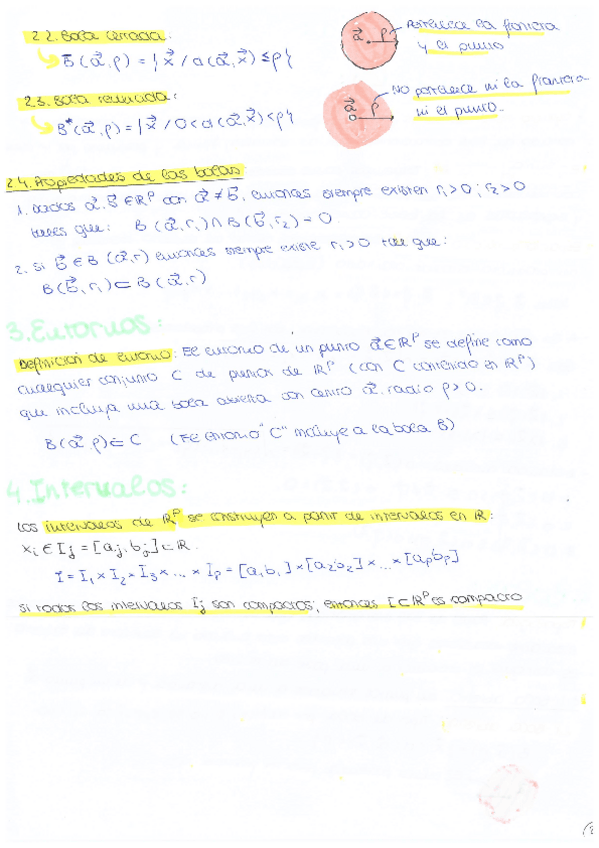 2.2. Bola cerrada:
B̄(a⃗,ρ) = {x⃗ / d(a⃗,x⃗) ≤ ρ}
a⃗ ρ
Pertenece la frontera
y el punto
2.3. Bola reducida:
B*(a⃗,ρ) = {x⃗ / 0 < d(a⃗,x⃗) < ρ}
a⃗ ρ
NO pertenece ni la frontera
ni el punto.
2.4. Propiedades de las bolas
1. Dados a⃗, b⃗ ∈ ℝᵖ con a⃗ ≠ b⃗, entonces siempre existen r₁>0; r₂>0
tales que: B(a⃗,r₁) ∩ B(b⃗,r₂) = 0.
2. Si b⃗ ∈ B(a⃗,r) entonces siempre existe r₁>0 tal que:
B(b⃗,r₁) ⊂ B(a⃗,r)
3. Entornos:
Definición de entorno: El entorno de un punto a⃗ ∈ ℝᵖ se define como
cualquier conjunto C de puntos de ℝᵖ (con C contenido en ℝᵖ)
que incluya una bola abierta con centro a⃗, radio ρ>0.
B(a⃗,ρ) ⊂ C (El entorno "C" incluye a la bola B)
4. Intervalos:
Los intervalos de ℝᵖ se construyen a partir de intervalos en ℝ:
xᵢ ∈ Iⱼ = [aⱼ, bⱼ] ⊂ ℝ.
I = I₁ × I₂ × I₃ × ... × Iₚ = [a₁b₁] × [a₂b₂] × ... × [aₚbₚ]
si todos los intervalos Iⱼ son compactos; entonces I ⊂ ℝᵖ es compacto